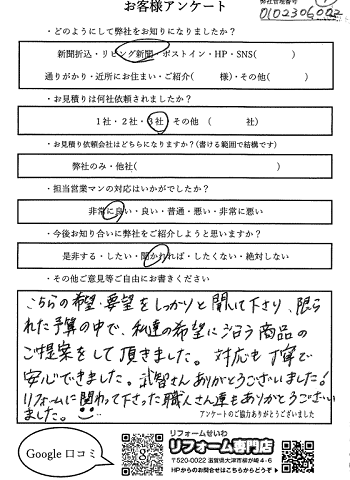 お客様アンケート
弊社管理番号
0102306002
・どのようにして弊社をお知りになりましたか？
新聞折込・リビング新聞・ポストイン・HP・SNS(　　　)
通りがかり・近所にお住まい・ご紹介(　　　様)・その他(　　　)
・お見積りは何社依頼されましたか？
1社・2社・3社・その他（　　　社）
・お見積り依頼会社はどちらになりますか？(書ける範囲で結構です)
弊社のみ・他社(　　　)
・担当営業マンの対応はいかがでしたか？
非常に良い・良い・普通・悪い・非常に悪い
・今後お知り合いに弊社をご紹介しようと思いますか？
是非する・したい・聞かれれば・したくない・絶対しない
・その他ご意見等ご自由にお書きください
こちらの希望・要望をしっかりと聞いて下さり、限ら
れた予算の中で、私達の希望に沿う商品の
ご提案をして頂きました。対応も丁寧で
安心できました。武智さんありがとうございました！
リフォームに関わって下さった職人さん達もありがとうござい
ました。
アンケートのご協力ありがとうございました
Google 口コミ
リフォームせいわ
リフォーム専門店
〒520-0022 滋賀県大津市柳が崎4-6
HPからのお問合せはこちらからどうぞ